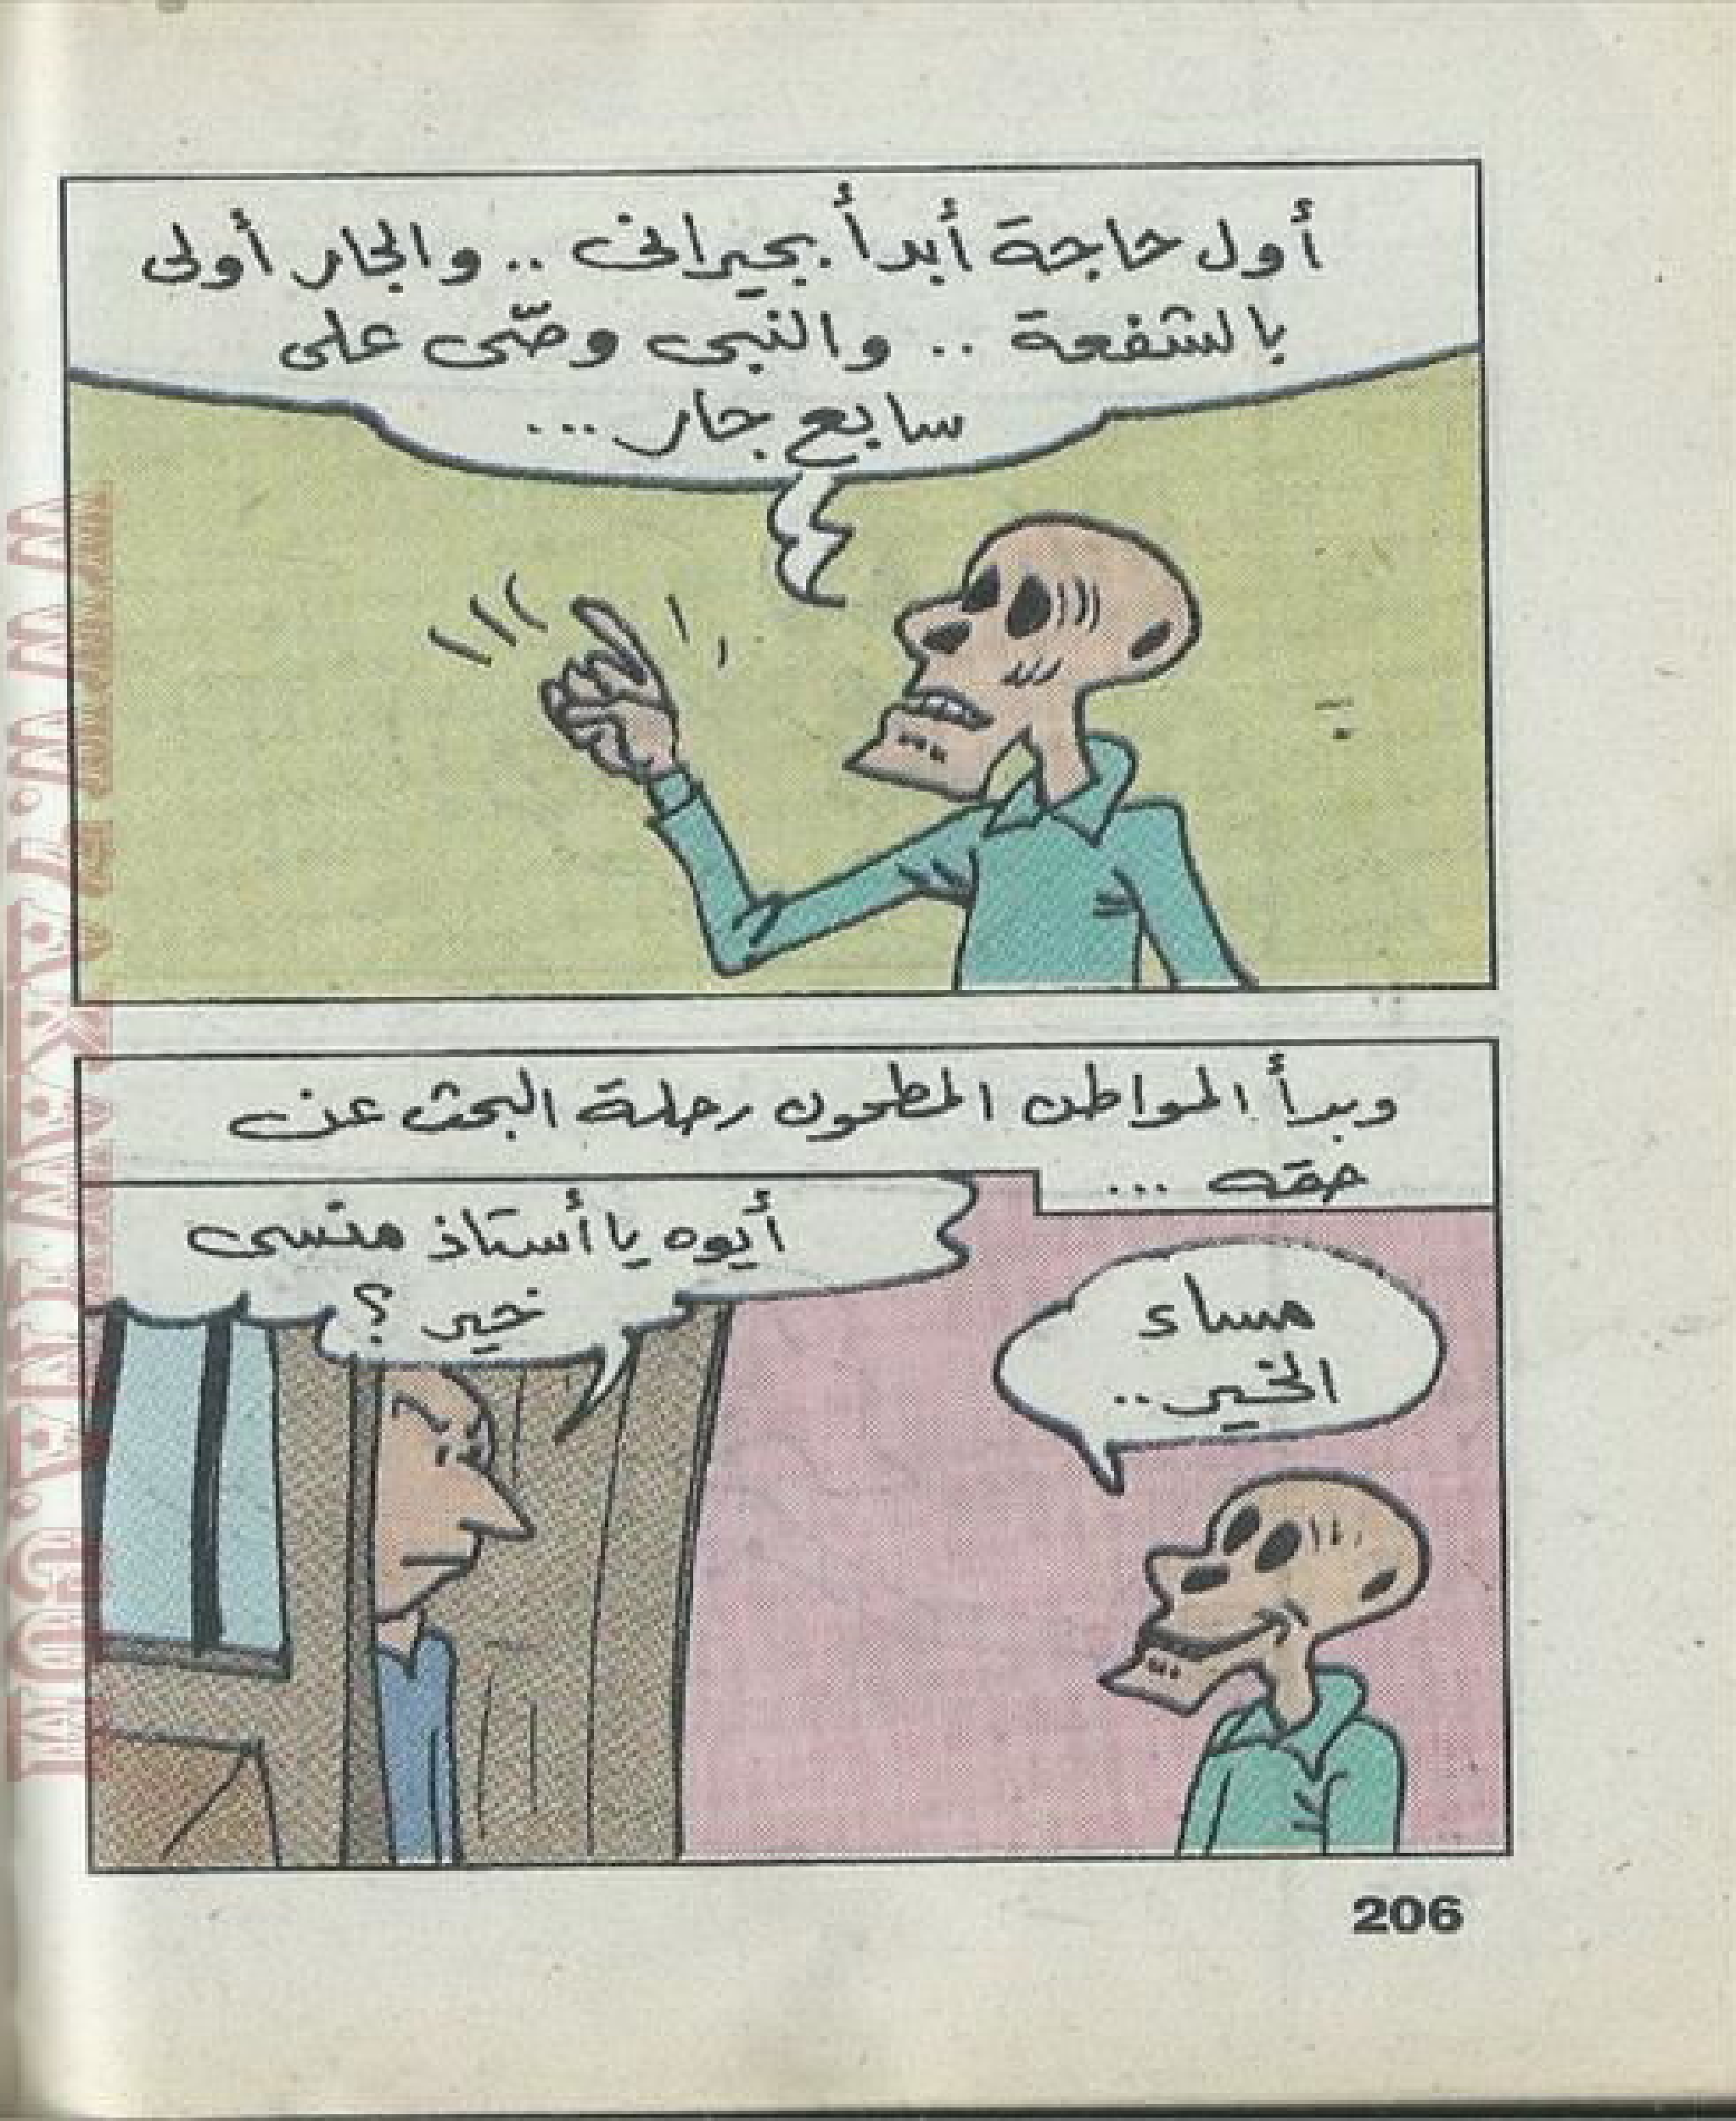 أول حاجة أبدأ بجيرانى .. والجار أولى
بالشفعة .. والنبى وصّى على
سابع جار ...
وبدأ المواطن المطحون رحلة البحث عن
حقه ...
مساء
الخير ..
أيوه يا أستاذ منسى
خير ؟
206